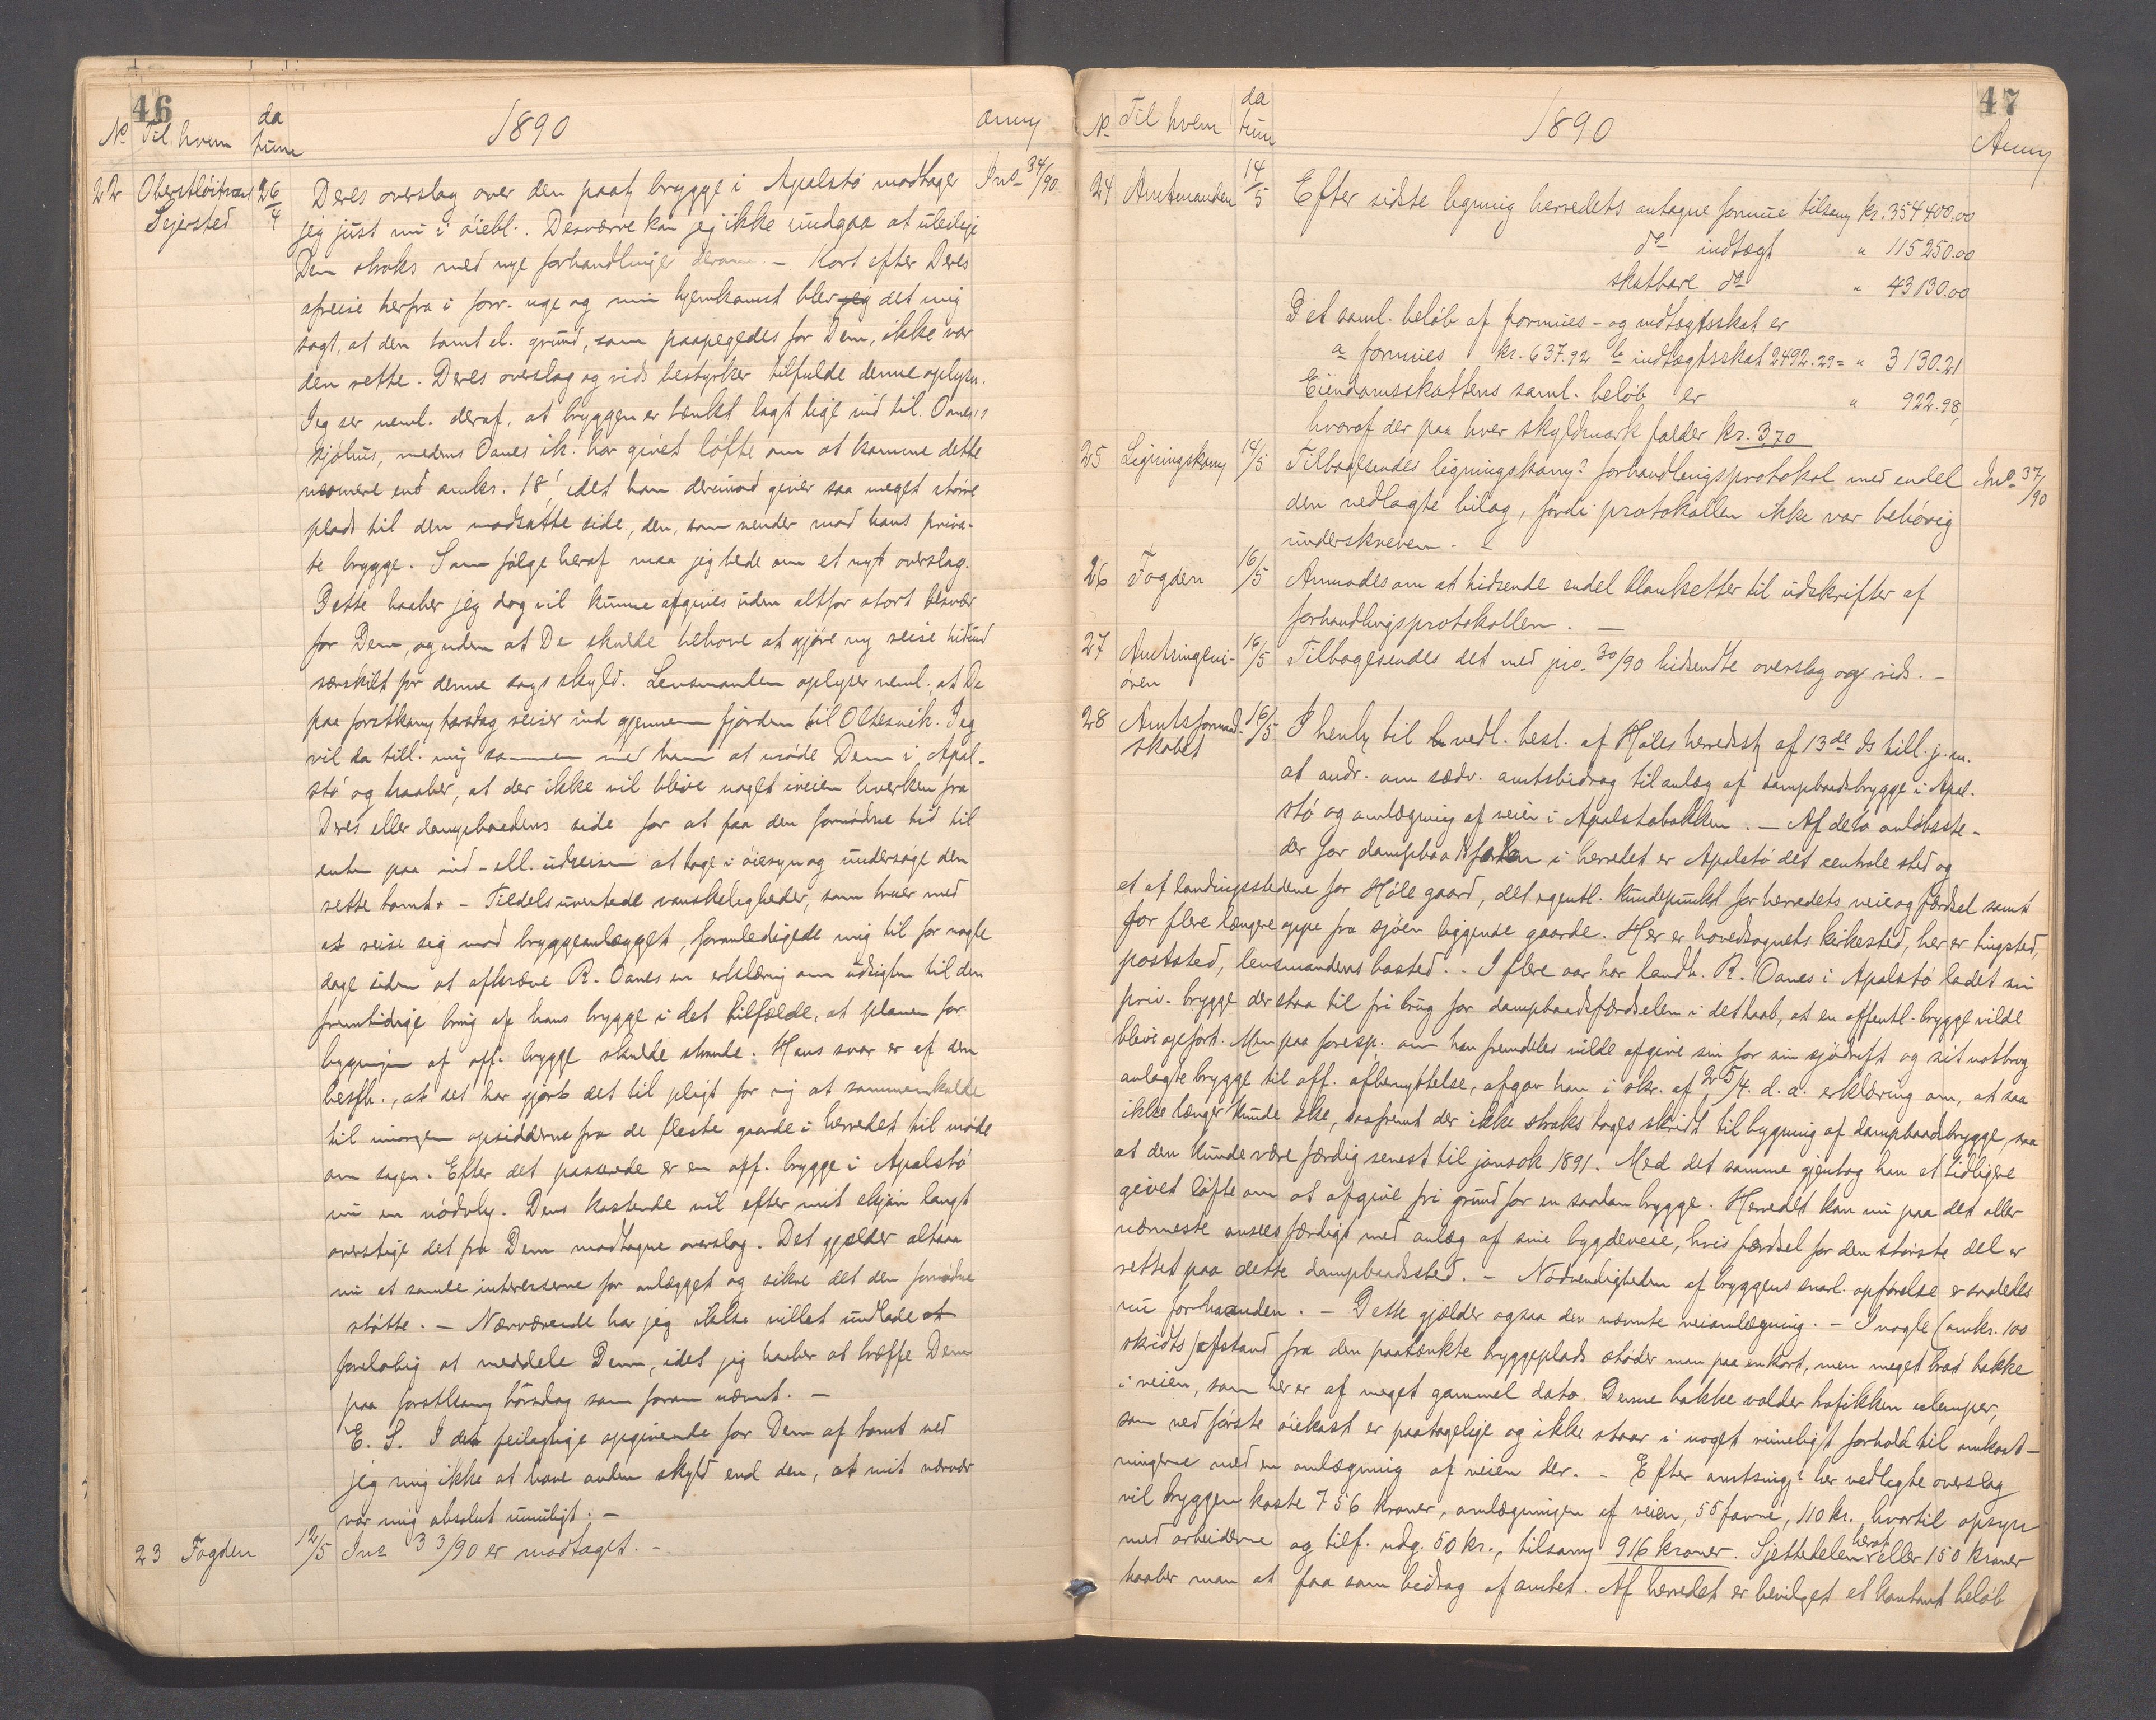 46
No Til hvem datum 1890 anm
22 Oberstløitnant Sejersted 26/4 Deres overslag over den paat. brygge i Apalstø modtager Jno 34/90
jeg just nu i øiebl. Desværre kan jeg ikke undgaa at uleilige
Dem straks med nye forhandlinger derom. — Kort efter Deres
afreise herfra i forr. uge og min hjemkomst blev jeg det mig
sagt, at den tomt el. grund, som paapegedes for Dem, ikke var
den rette. Deres overslag og rids bestyrker tilfulde denne oplysn.
Jeg ser neml. deraf, at bryggen er tænkt lagt lige ind til Oanes's
sjøhus, medens Oanes ik. har givet løfte om at komme dette
nærmere end omkr. 18', idet han derimod giver saa meget større
plads til den modsatte side, den, som vender mod hans priva-
te brygge. Som følge heraf maa jeg bede om et nyt overslag.
Dette haaber jeg dog vil kunne afgives uden altfor stort besvær
for Dem, og uden at De skulde behøve at gjøre ny reise hidind
særskilt for denne sags skyld. Lensmanden oplyser neml., at De
paa førstkom. torsdag reiser ind gjennem fjorden til Oltesvik. Jeg
vil da till. mig sammen med ham at møde Dem i Apal-
stø og haaber, at der ikke vil blive noget iveien hverken fra
Deres eller dampbaadens side for at faa den fornødne tid til
enten paa ind- ell. udreisen at tage i øiesyn og undersøge den
rette tomt. — Tildels uventede vanskeligheder, som truer med
at reise sig mod bryggeanlægget, foranledigede mig til for nogle
dage siden at afkræve R. Oanes en erklæring om udsigten til den
fremtidige brug af hans brygge i det tilfælde, at planen for
bygningen af off. brygge skulde strande. Hans svar er af den
besk., at det har gjort det til pligt for mig at sammenkalde
til imorgen opsidderne fra de fleste gaarde i herredet til møde
om sagen. Efter det passerede er en off. brygge i Apalstø
nu en nødv. Dens kostende vil efter mit skjøn langt
overstige det fra Dem modtagne overslag. Det gjælder altsaa
nu at samle interesserne for anlægget og sikre det den fornødne
støtte. — Nærværende har jeg ikke villet undlade at
foreløbig at meddele Dem, idet jeg haaber at træffe Dem
paa førstkom. torsdag som foran nævnt. —
E. S. I den feilagtige opgivende for Dem af tomt ved
jeg mig ikke at have anden skyld end den, at mit nærvær
var mig absolut umuligt. —
23 Fogden 12/5 Jno 33/90 er modtaget. —
47
No Til hvem datum 1890 Anm
24 Amtmanden 14/5 Efter sidste ligning herredets antagne formue tilsam. kr. 354400.00
do indtægt " 115250.00
skatbare do " 43130.00
Det saml. beløb af formues- og indtægtsskat er
a formues kr. 637.92 b indtægtsskat 2492.29 = " 3130.21
Eiendomsskattens saml. beløb er " 922.98,
hvoraf der paa hver skyldmark falder kr. 3,70
25 Ligningskom 14/5 Tilbagesendes ligningskom.s forhandlingsprotokol med endel Jno 37/90
den vedlagte bilag, fordi protokollen ikke var behørig
underskreven. —
26 Fogden 16/5 Anmodes om at hidsende endel blanketter til udskrifter af
forhandlingsprotokollen. —
27 Amtsingeni-øren 16/5 Tilbagesendes det med jno. 30/90 hidsendte overslag og rids. —
28 Amtsformandskabet 16/5 I henh. til vedl. besl. af Høles herredsst. af 13de ds till. j. m.
at andr. om sædv. amtsbidrag til anlæg af dampbaadsbrygge i Apal-
stø og omlægning af veien i Apalstøbakken. — Af de to anløbsste-
der for dampbaadsfarten i herredet er Apalstø det centrale sted og
et af landingsstedene for Høle gaard, det egentl. knudepunkt for herredets veie og færdsel samt
for flere længere oppe fra sjøen liggende gaarde. Her er hovedsognets kirkested, her er tingsted,
poststed, lensmandens bosted.. I flere aar har landh. R. Oanes i Apalstø ladet sin
priv. brygge der staa til fri brug for dampbaadsfærdselen i det haab, at en offentl. brygge vilde
blive opført. Men paa foresp. om han fremdeles vilde afgive sin for sin sjødrift og sit notbrug
anlagte brygge til off. afbenyttelse, afgav han i skr. af 25/4. d. a. erklæring om, at saa
ikke længer kunde ske, saafremt der ikke straks toges skridt til bygning af dampbaadsbrygge, saa
at den kunde være færdig senest til jonsok 1891. Med det samme gjentog han et tidligere
givet løfte om at afgive fri grund for en saadan brygge. Herredet kan nu paa det aller
nærmeste ansees færdigt med anlæg af sine bygdeveie, hvis færdsel for den største del er
rettet paa dette dampbaadssted. — Nødvendigheden af bryggens snarl. opførelse er saaledes
nu forhaanden. — Dette gjælder ogsaa den nævnte veiomlægning. — I nogle (omkr. 100
skridts) afstand fra den paatænkte bryggeplads støder man paa en kort, men meget brat bakke
i veien, som her er af meget gammel dato. Denne bakke volder trafikken ulemper,
som ved første øiekast er paatagelige og ikke staar i noget rimeligt forhold til omkost-
ningerne med en omlægning af veien der. — Efter amtsing.s her vedlagte overslag
vil bryggen koste 756 kroner, omlægningen af veien, 55 favne, 110 kr., hvortil opsyn
med arbeiderne og tilf. udg. 50 kr., tilsam. 916 kroner. Sjettedelen heraf eller 150 kroner
haaber man at faa som bidrag af amtet. Af herredet er bevilget et kontant beløb